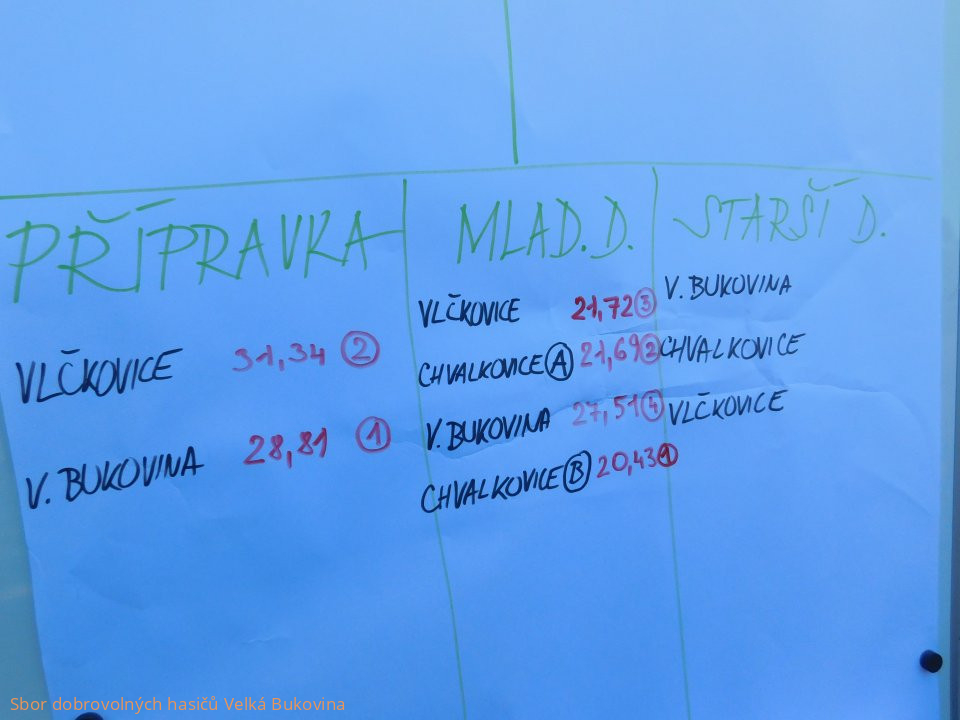 PŘÍPRAVKA
VLČKOVICE 31,34 2
V. BUKOVINA 28,81 1
MLAD. D.
VLČKOVICE 21,72 3
CHVALKOVICE A 21,69 2
V. BUKOVINA 27,51 4
CHVALKOVICE B 20,43 1
STARŠÍ D.
V. BUKOVINA
CHVALKOVICE
VLČKOVICE
Sbor dobrovolných hasičů Velká Bukovina